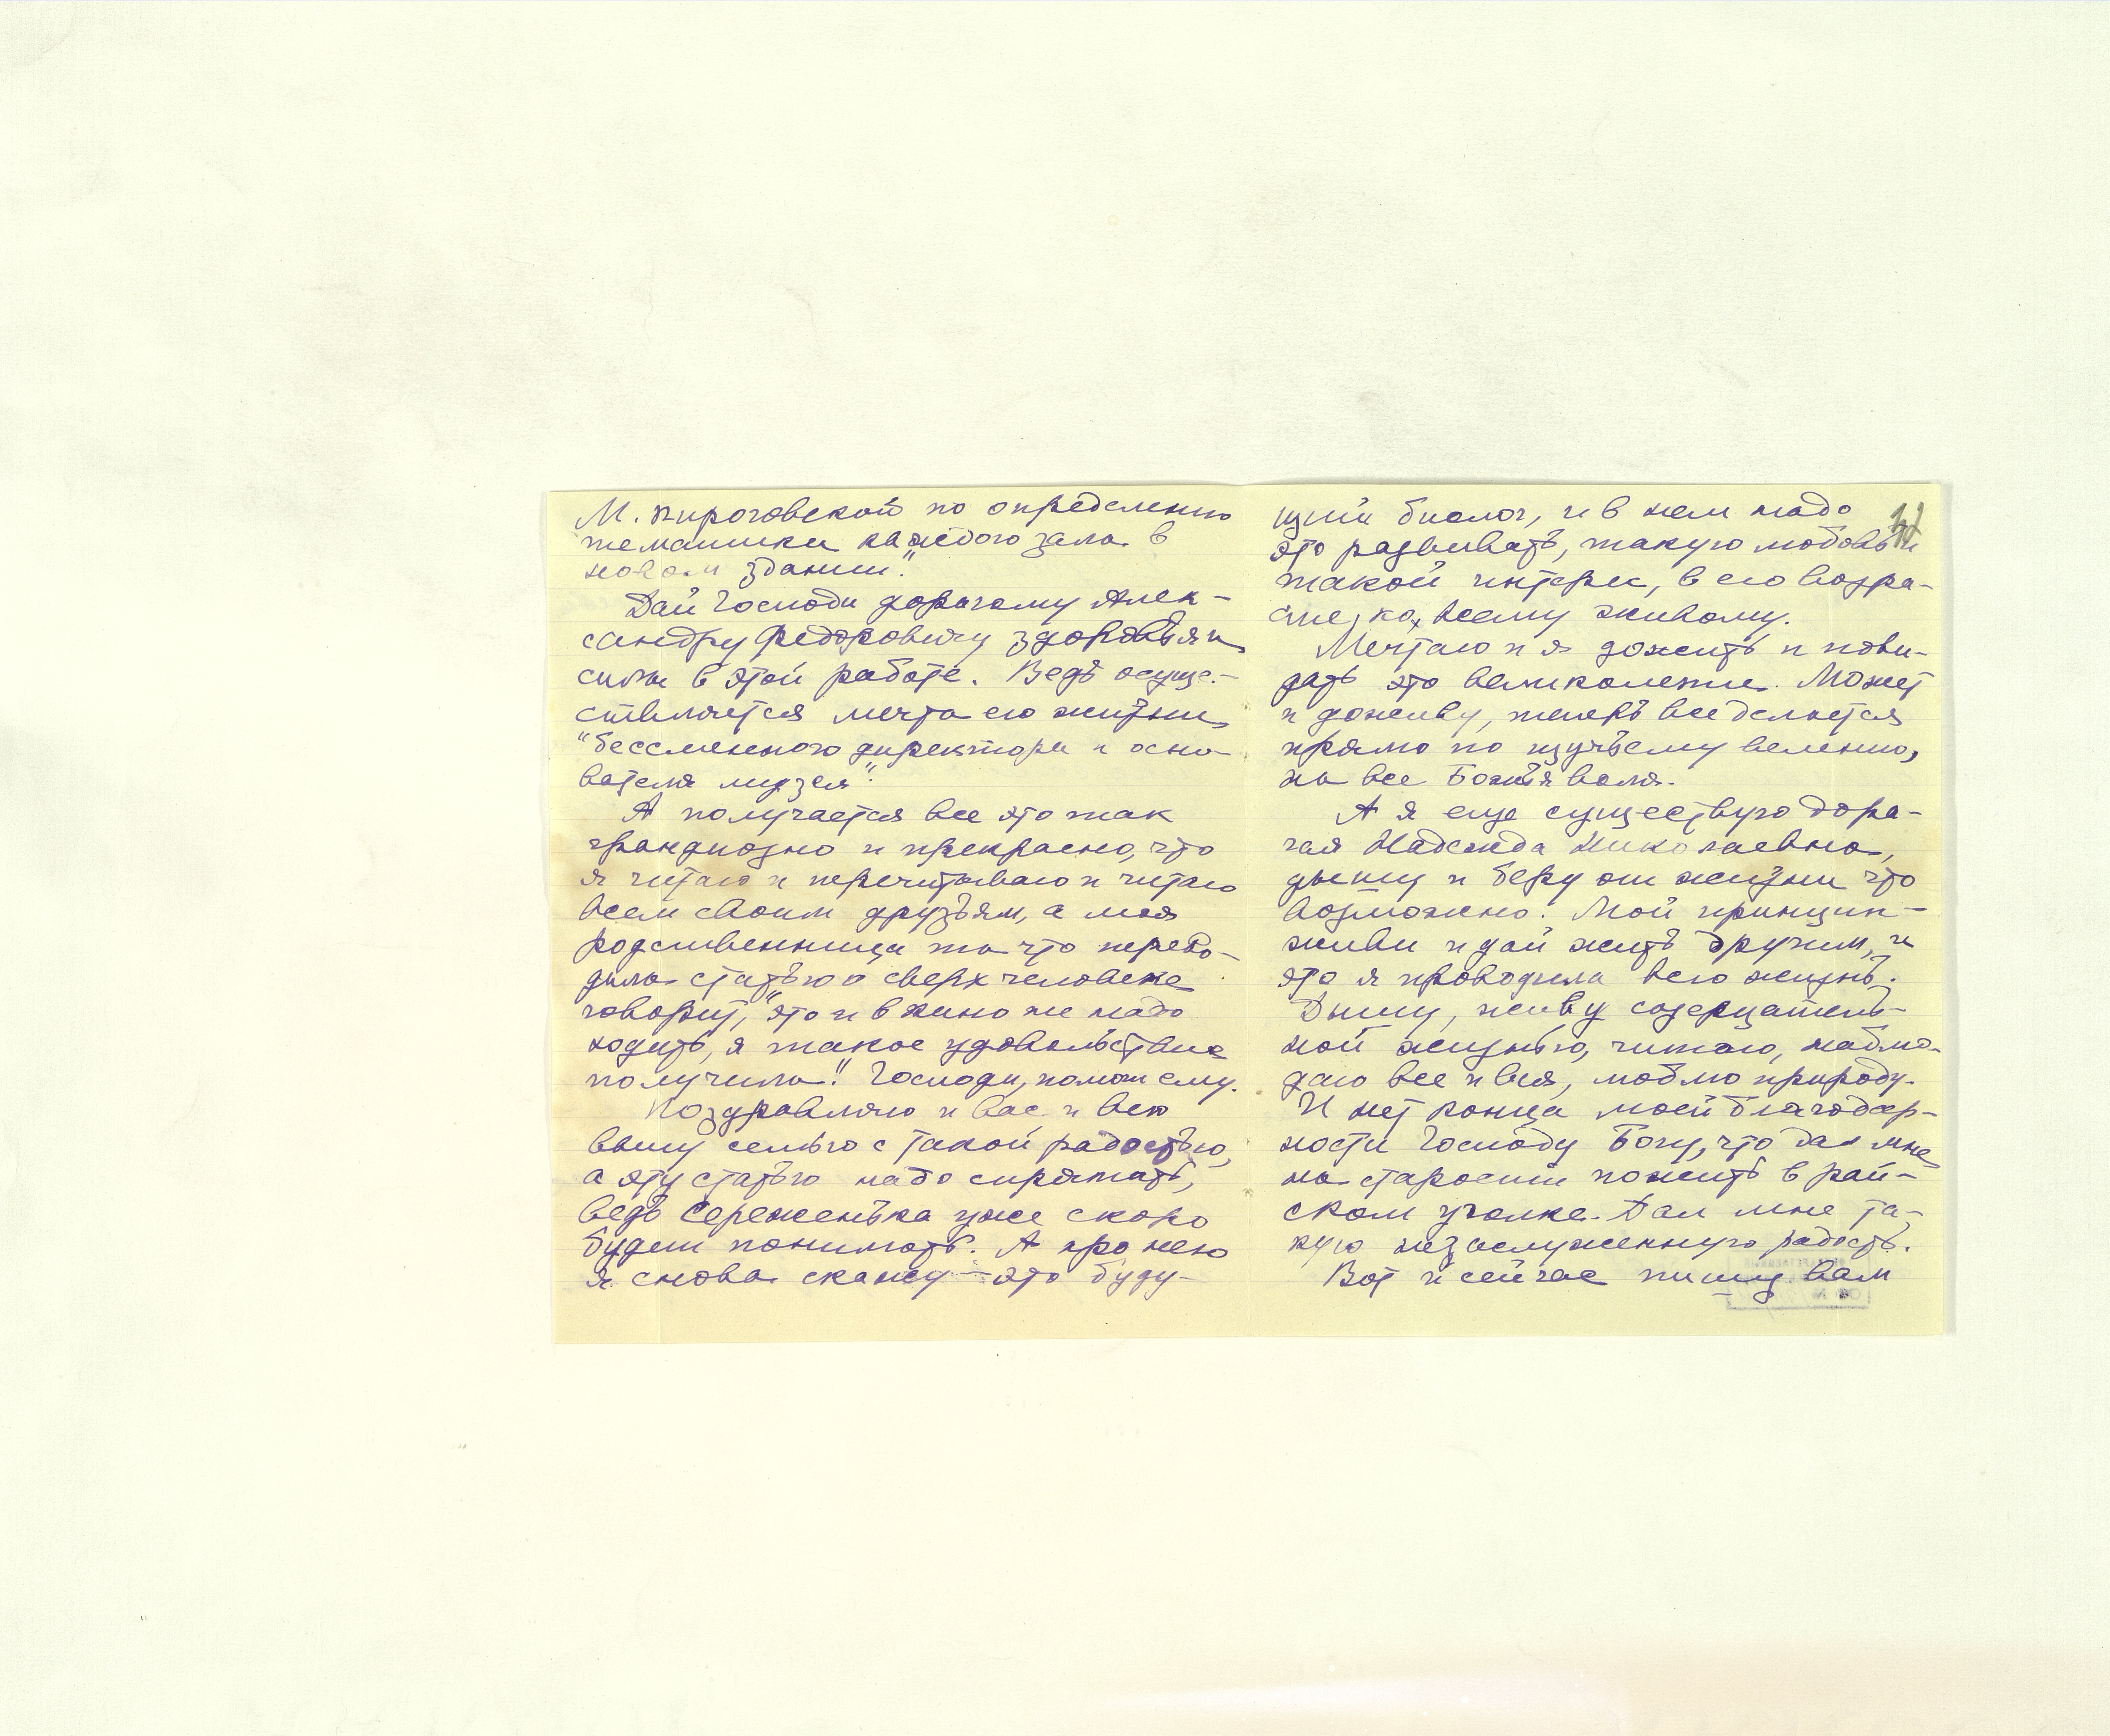 М. Пироговской по определению
тематики каждого зала в
новом здании."
Дай Господи дорогому Алек-
сандру Федоровичу здоровья и
силы в этой работе. Ведь осуще-
ствляется мечта его жизни,
"бессменного директора и осно-
вателя музея".
А получается все это так
грандиозно и прекрасно, что
я читаю и перечитываю и читаю
всем своим друзьям, а моя
родственница та что перево-
дила статью о сверхчеловеке
говорит, "это и в кино не надо
ходить, я такое удовольствие
получила". Господи, помоги ему.
Поздравляю и вас и всю
вашу семью с такой радостью,
а эту статью надо спрятать,
ведь Сереженька уже скоро
будет понимать. А про него
я снова скажу — это буду-
щий биолог, и в нем надо
это развивать, такую любовь и
такой интерес, в его возра-
сте, ко всему живому.
Мечтаю и я дожить и пови-
дать это великолепие. Может
и доживу, теперь все делается
прямо по щучьему велению,
на все Божья воля.
А я еще существую доро-
гая Надежда Николаевна,
дышу и беру от жизни что
возможно. Мой принцип —
живи и дай жить другим, и
это я проводила всю жизнь.
Дышу, живу созерцатель-
ной жизнью, читаю, наблю-
даю все и вся, люблю природу.
И нет конца моей благодар-
ности Господу Богу, что дал мне
на старости пожить в рай-
ском уголке. Дал мне та-
кую незаслуженную радость.
Вот и сейчас пишу вам